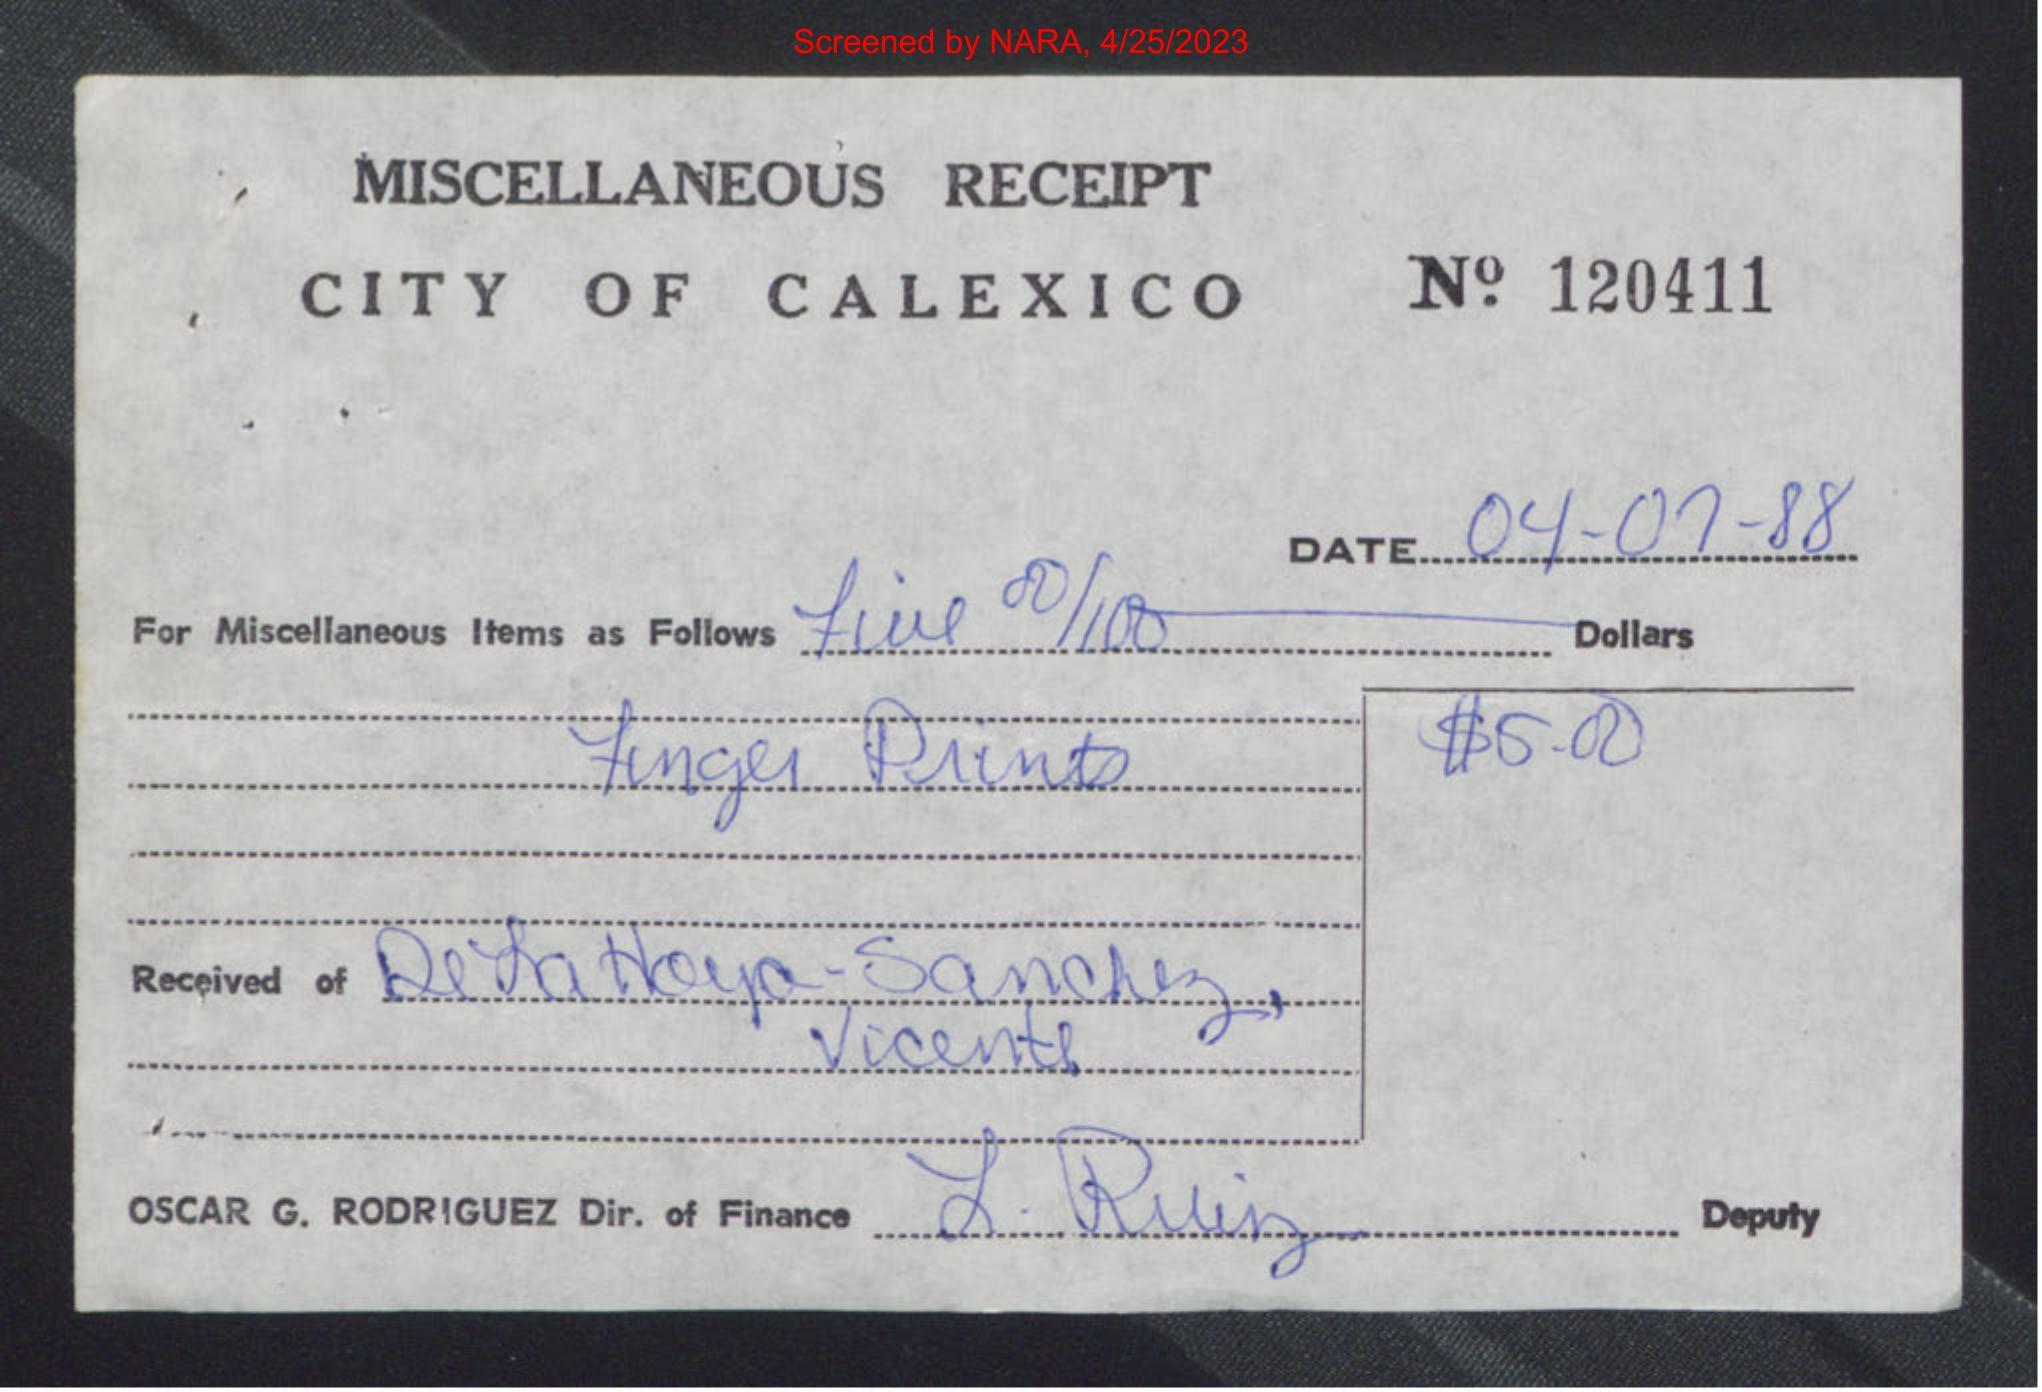 Screened by NARA, 4/25/2023
MISCELLANEOUS RECEIPT
CITY OF CALEXICO Nº 120411
DATE 04-07-88
For Miscellaneous Items as Follows Five 00/100 Dollars
Finger Prints $5.00
Received of De La Hoya-Sanchez,
Vicente
OSCAR G. RODRIGUEZ Dir. of Finance L. Ruiz Deputy